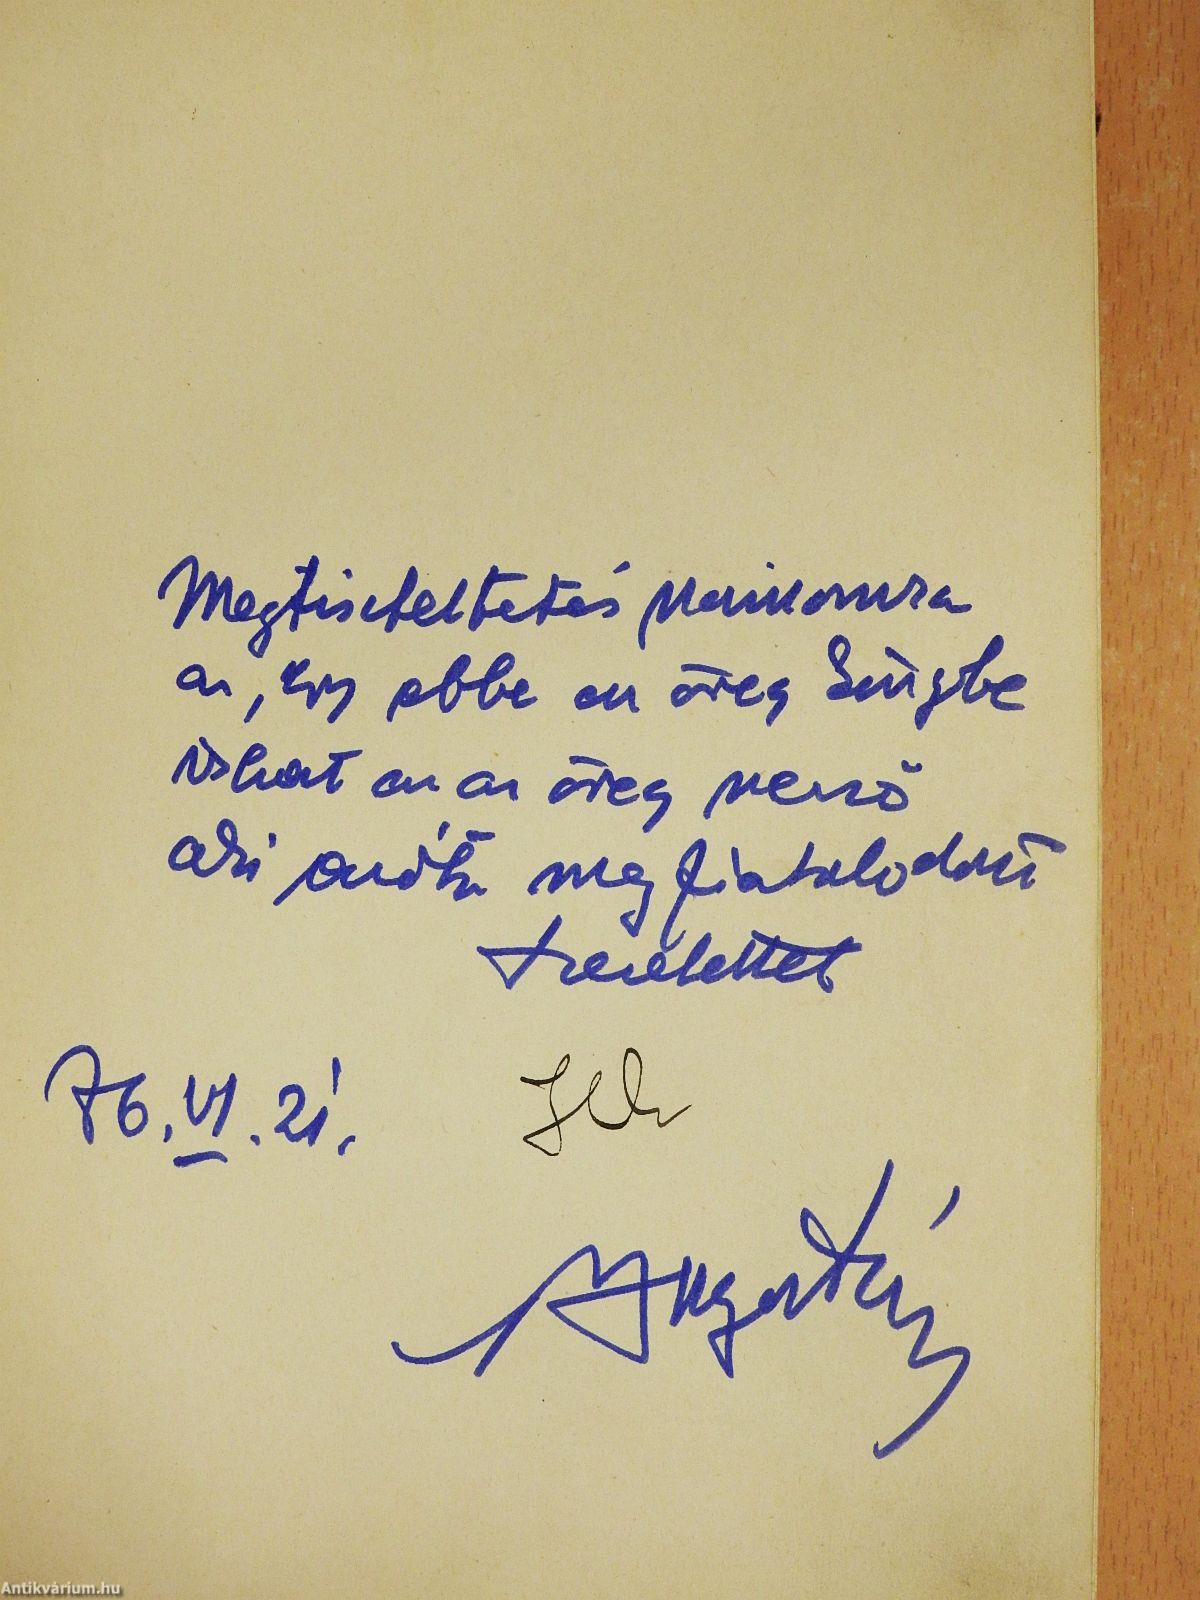 Megtiszteltetés számomra
az, hogy ebbe az öreg könyvbe
írhat az az öreg
aki azóta megfiatalodott
szeretettel
76. VI. 21.
Antikvárium.hu